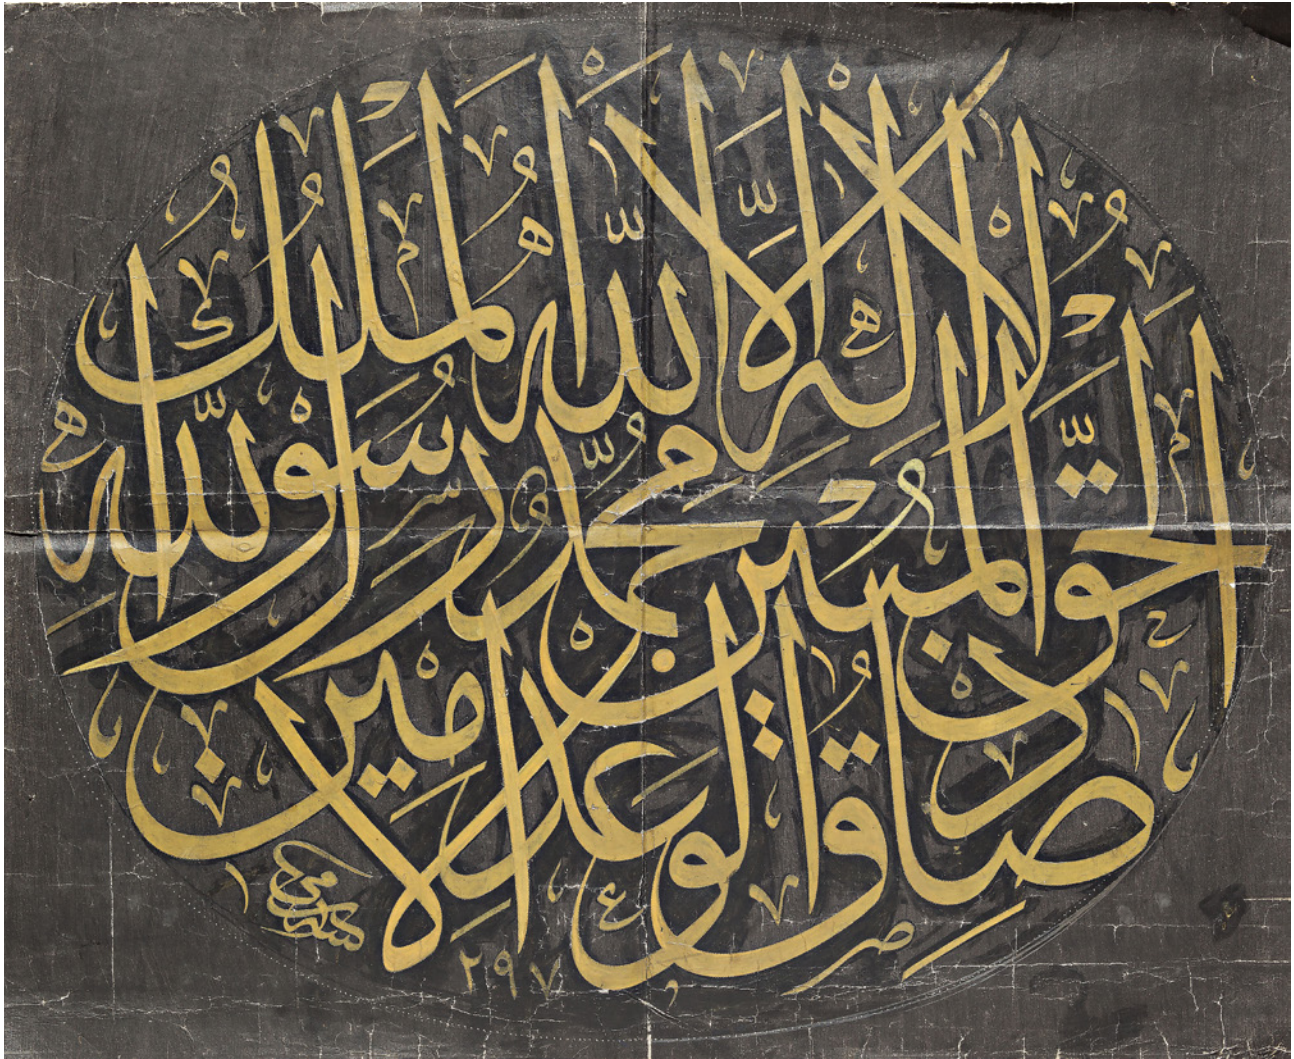 لا إله إلا الله الملك
الحق المبين محمد رسول الله
صادق الوعد الأمين
١٢٩٧